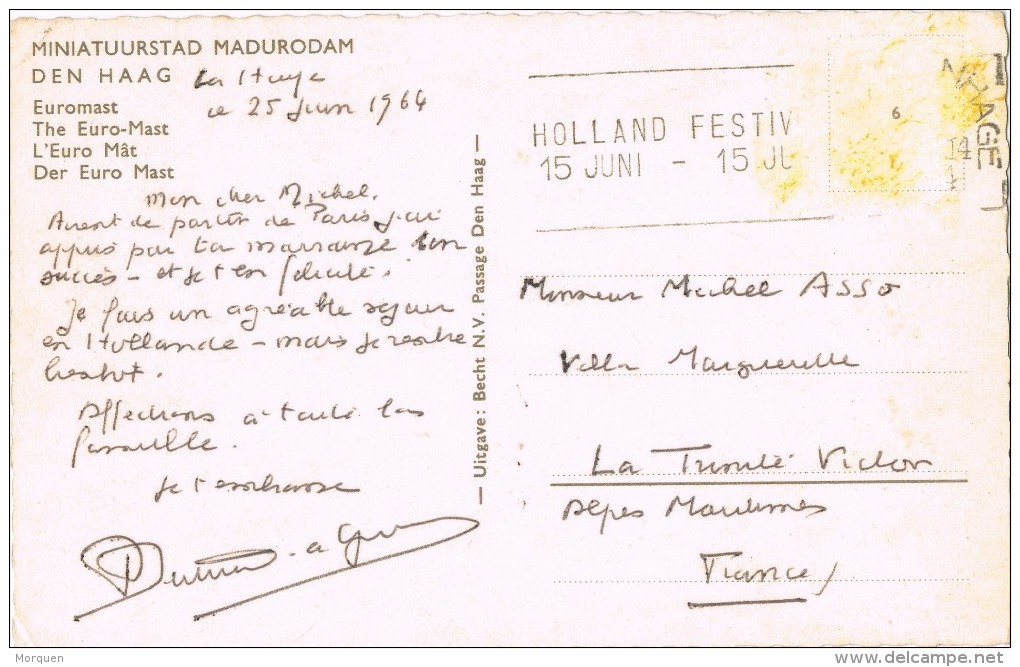 MINIATUURSTAD MADURODAM
DEN HAAG
La Haye
le 25 Juin 1964
Euromast
The Euro-Mast
L'Euro Mât
Der Euro Mast
Mon cher Michel.
Avant de partir de Paris j'ai
appris par ta marraine ton
succès - et je t'en félicite.
Je fais un agréable séjour
en Hollande - mais je rentre
bientôt.
Affections à toute la
famille.
Je t'embrasse
— Uitgave: Becht N.V. Passage Den Haag —
HOLLAND FESTIV
15 JUNI - 15 JU
6
HAGE
14
Monsieur Michel Asso
Villa Marguerite
La Trinité Victor
Alpes Maritimes
France
Morquen
delcampe.net